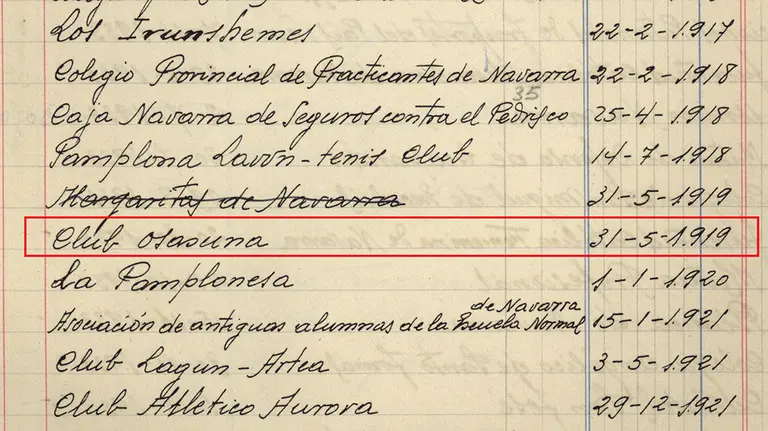 Los Irunshemes 22-2-1.917
Colegio Provincial de Practicantes de Navarra 22-2-1.918
35
Caja Navarra de Seguros contra el Pedrisco 25-4-1.918
Pamplona Lavön-tenis Club 14-7-1.918
Margaritas de Navarra 31-5-1.919
Club Osasuna 31-5-1.919
La Pamplonesa 1-1-1.920
de Navarra
Asociación de antiguas alumnas de la Escuela Normal 15-1-1.921
Club Lagun-Artea 3-5-1.921
Club Atletico Aurora 29-12-1.921